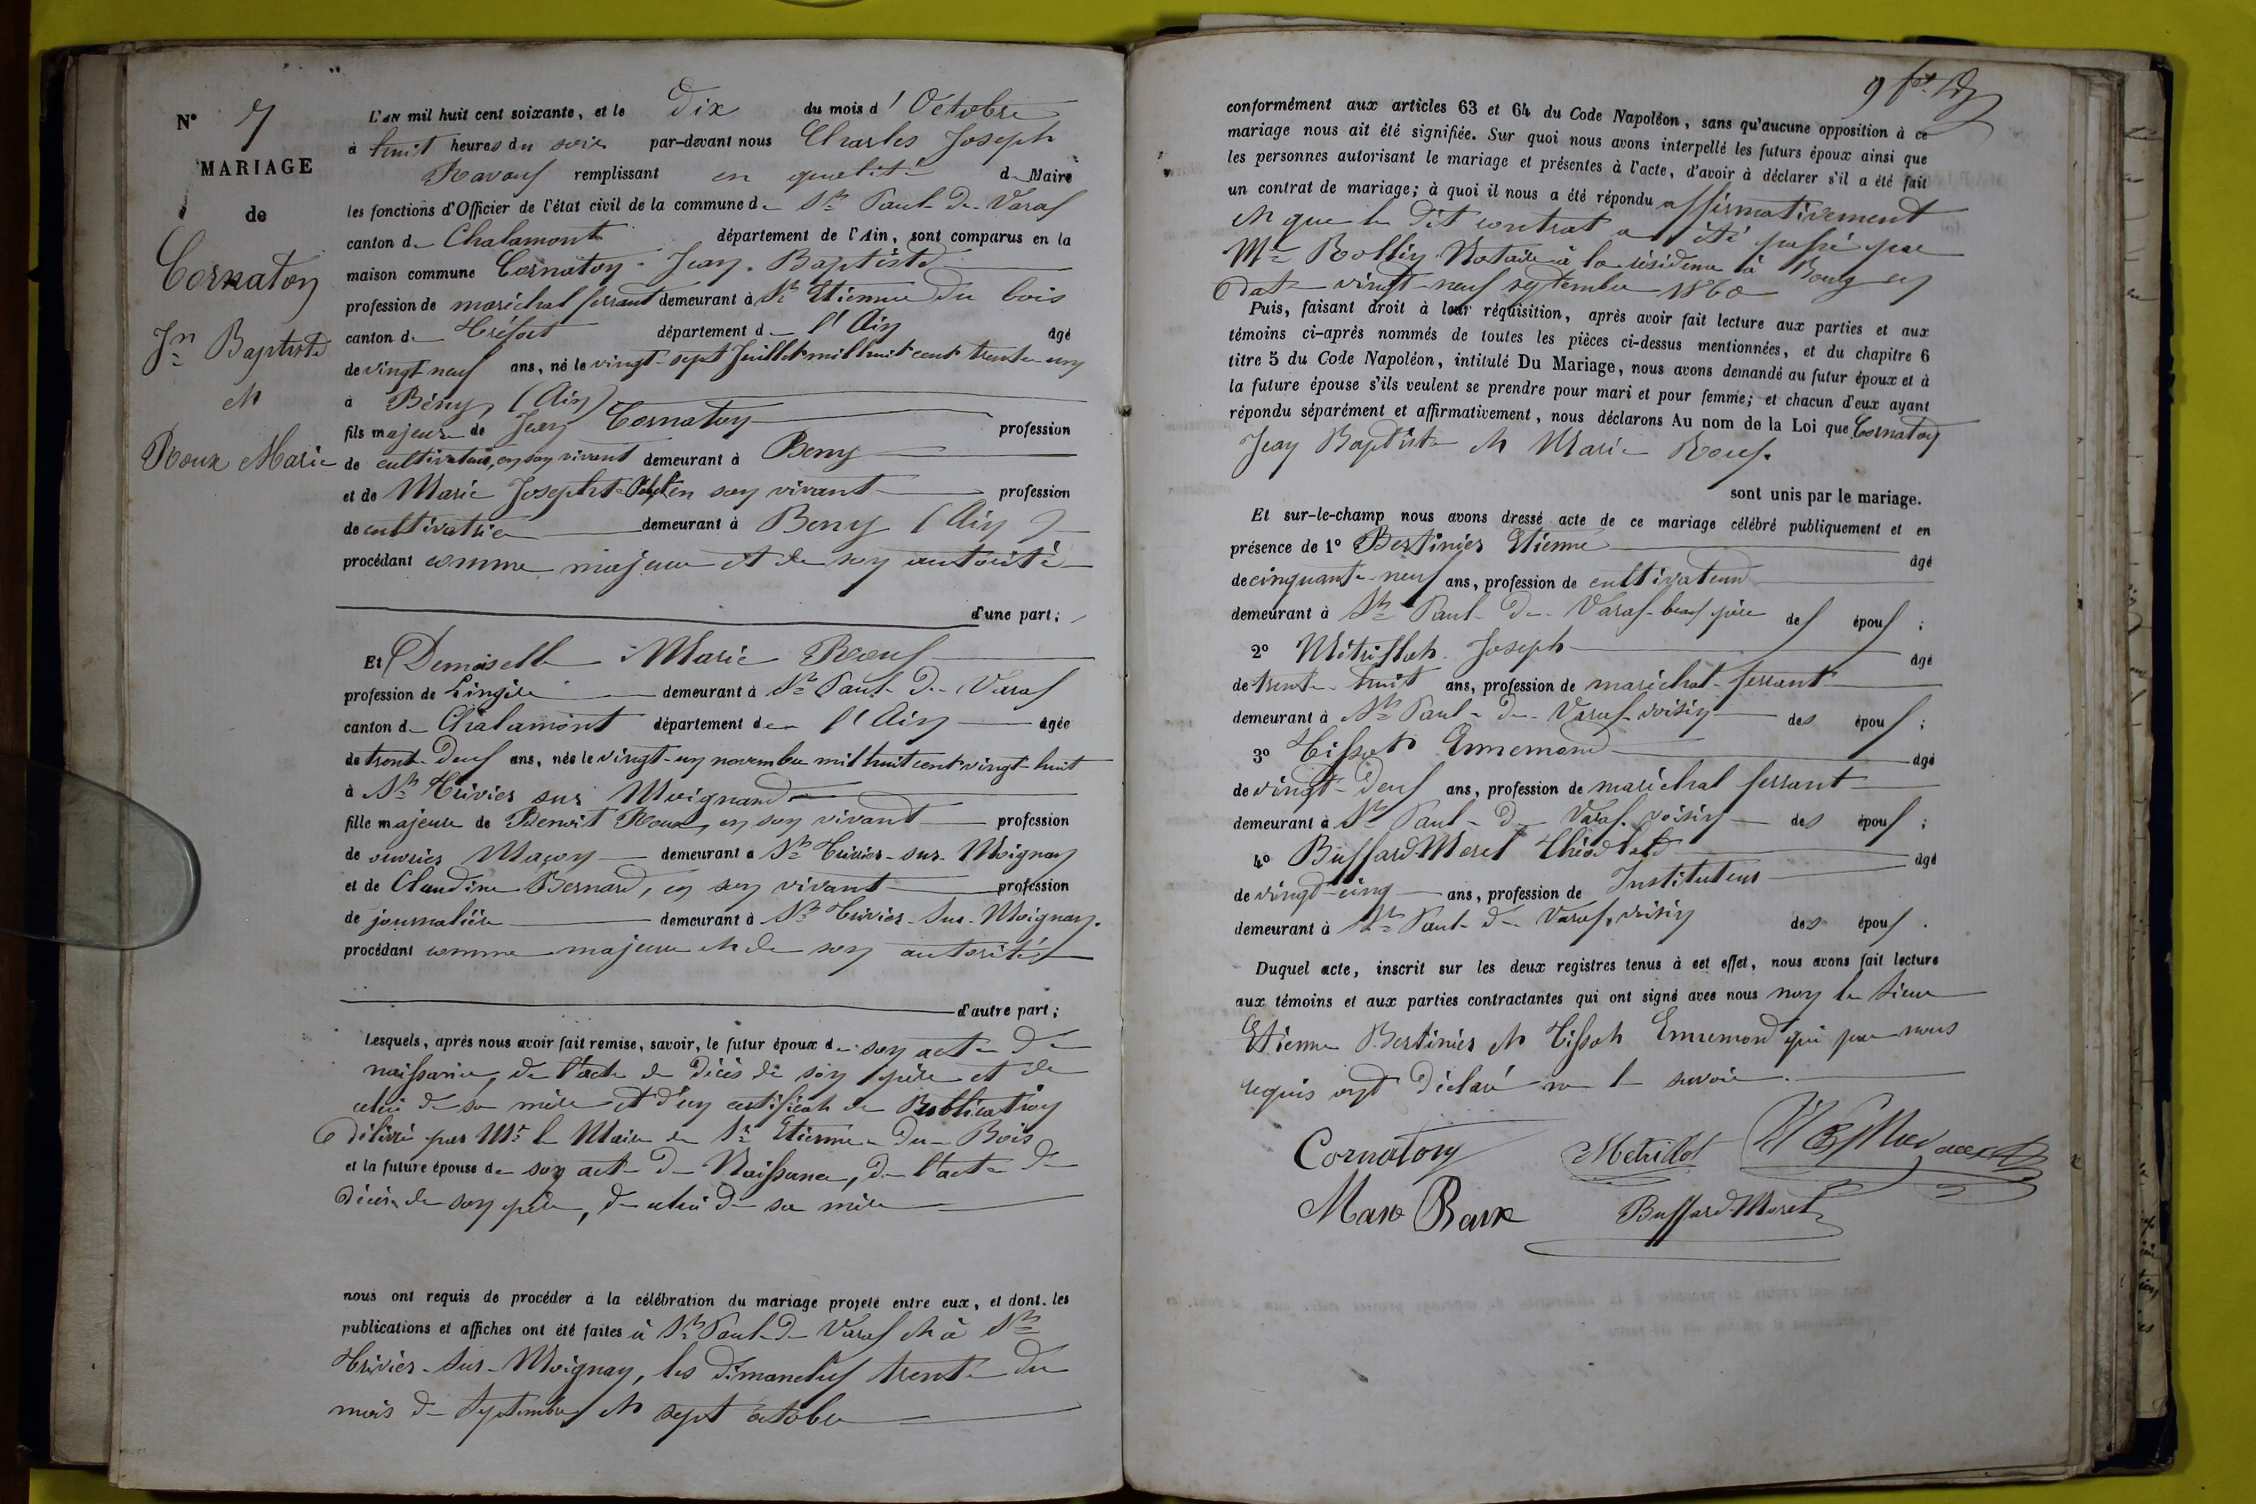 N° 7
MARIAGE
de
Cornaton
Jn Baptiste
et
Roux Marie
L'AN mil huit cent soixante, et le Dix du mois d'Octobre
à huit heures du soir par-devant nous Charles Joseph
Ravoux remplissant en qualité de Maire
les fonctions d'Officier de l'état civil de la commune de St Paul de Varax
canton de Chalamont département de l'Ain, sont comparus en la
maison commune Cornaton Jean Baptiste
profession de maréchal ferrant demeurant à St Etienne du bois
canton de Tréfort département de l'Ain âgé
de vingt neuf ans, né le vingt-sept Juillet mil huit cent trente un
à Bény (Ain)
fils majeur de Jean Cornaton profession
de cultivateur, en son vivant demeurant à Beny
et de Marie Josephte en son vivant profession
de cultivatrice demeurant à Beny (Ain)
procédant comme majeur et de son autorité
d'une part;
Et Demoiselle Marie Roux
profession de Lingère demeurant à St Paul de Varax
canton de Chalamont département de l'Ain âgée
de trente deux ans, née le vingt-un novembre mil huit cent vingt-huit
à St Trivier sur Moignand
fille majeure de Benoit Roux, en son vivant profession
de ouvrier Maçon demeurant à St Trivier-sur-Moignan
et de Claudine Bernard, en son vivant profession
de journalière demeurant à St Trivier-sur-Moignan.
procédant comme majeure et de son autorité
d'autre part;
Lesquels, après nous avoir fait remise, savoir, le futur époux de son acte de
naissance, de l'acte de décès de son père et de
celui de sa mère et d'un certificat de Publication
délivré par Mr le Maire de St Etienne-du-Bois
et la future épouse de son acte de Naissance, de l'acte de
décès de son père, de celui de sa mère
nous ont requis de procéder à la célébration du mariage projeté entre eux, et dont les
publications et affiches ont été faites à St Paul de Varax et à St
Trivier-sur-Moignan, les dimanches trente du
mois de Septembre et sept octobre
conformément aux articles 63 et 64 du Code Napoléon, sans qu'aucune opposition à ce
mariage nous ait été signifiée. Sur quoi nous avons interpellé les futurs époux ainsi que
les personnes autorisant le mariage et présentes à l'acte, d'avoir à déclarer s'il a été fait
un contrat de mariage; à quoi il nous a été répondu affirmativement
et que le dit contrat a été passé par
Me Rollin Notaire à la résidence à Bourg en
date vingt-neuf septembre 1860
Puis, faisant droit à leur réquisition, après avoir fait lecture aux parties et aux
témoins ci-après nommés de toutes les pièces ci-dessus mentionnées, et du chapitre 6
titre 5 du Code Napoléon, intitulé Du Mariage, nous avons demandé au futur époux et à
la future épouse s'ils veulent se prendre pour mari et pour femme; et chacun d'eux ayant
répondu séparément et affirmativement, nous déclarons Au nom de la Loi que Cornaton
Jean Baptiste et Marie Roux.
sont unis par le mariage.
Et sur-le-champ nous avons dressé acte de ce mariage célébré publiquement et en
présence de 1° Bertinier Etienne âgé
de cinquante-neuf ans, profession de cultivateur
demeurant à St Paul de Varax beau père des époux;
2° Métrillot Joseph âgé
de trente-huit ans, profession de maréchal-ferrant
demeurant à St Paul-de-Varax voisin des époux;
3° Tissot Ennemond âgé
de vingt-deux ans, profession de maréchal ferrant
demeurant à St Paul-de Varax voisin des époux;
4° Buffard-Morel Théodule âgé
de vingt-cinq ans, profession de Instituteur
demeurant à St Paul de Varax, voisin des époux.
Duquel acte, inscrit sur les deux registres tenus à cet effet, nous avons fait lecture
aux témoins et aux parties contractantes qui ont signé avec nous non le sieur
Etienne Bertinier et Tissot Ennemond qui par nous
requis ont déclaré ne le savoir.
Cornaton Metrillot
Marie Roux Buffard-Morel